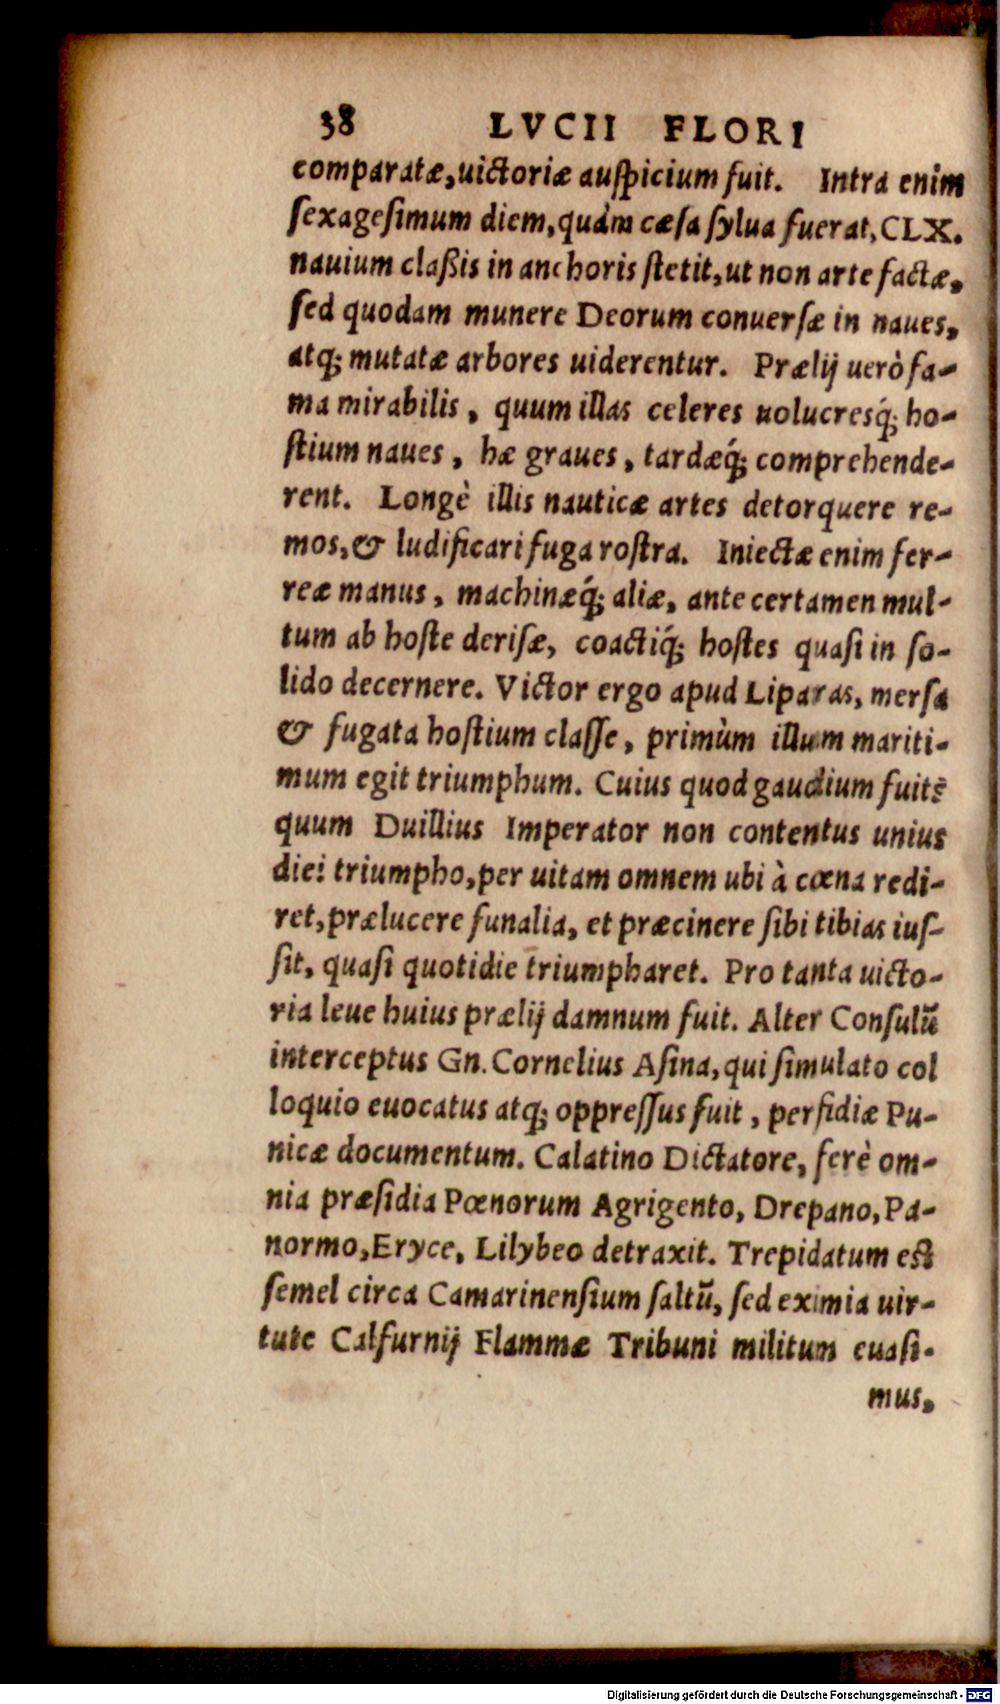 38 LVCII FLORI
comparatæ, uictoriæ auſpicium fuit. Intra enim
ſexageſimum diem, quàm cæſa ſylua fuerat, CLX.
nauium claßis in anchoris ſtetit, ut non arte factæ,
ſed quodam munere Deorum conuerſæ in naues,
atq; mutatæ arbores uiderentur. Prælij uerò fa-
ma mirabilis, quum illas celeres uolucresq́; ho-
ſtium naues, hæ graues, tardæq́; comprehende-
rent. Longè illis nauticæ artes detorquere re-
mos, & ludificari fuga roſtra. Iniectæ enim fer-
reæ manus, machinæq́; aliæ, ante certamen mul-
tum ab hoſte deriſæ, coactiq́; hoſtes quaſi in ſo-
lido decernere. Victor ergo apud Liparas, merſa
& fugata hoſtium claſſe, primùm illum mariti-
mum egit triumphum. Cuius quod gaudium fuit?
quum Duillius Imperator non contentus unius
diei triumpho, per uitam omnem ubi à cœna redi-
ret, prælucere funalia, et præcinere ſibi tibias iuſ-
ſit, quaſi quotidie triumpharet. Pro tanta uicto-
ria leue huius prælij damnum fuit. Alter Conſulū
interceptus Gn. Cornelius Aſina, qui ſimulato col
loquio euocatus atq; oppreſſus fuit, perfidiæ Pu-
nicæ documentum. Calatino Dictatore, ferè om-
nia præſidia Pœnorum Agrigento, Drepano, Pa-
normo, Eryce, Lilybeo detraxit. Trepidatum eſt
ſemel circa Camarinenſium ſaltū, ſed eximia uir-
tute Calfurnij Flammæ Tribuni militum euaſi-
mus,
Digitalisierung gefördert durch die Deutsche Forschungsgemeinschaft - DFG